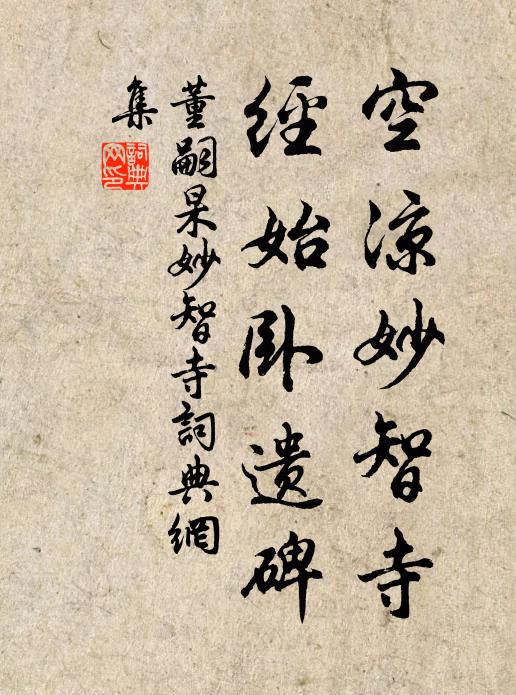 空涼妙智寺
經始卧遺碑
董嗣杲妙智寺詞典網
集
詞典
網印